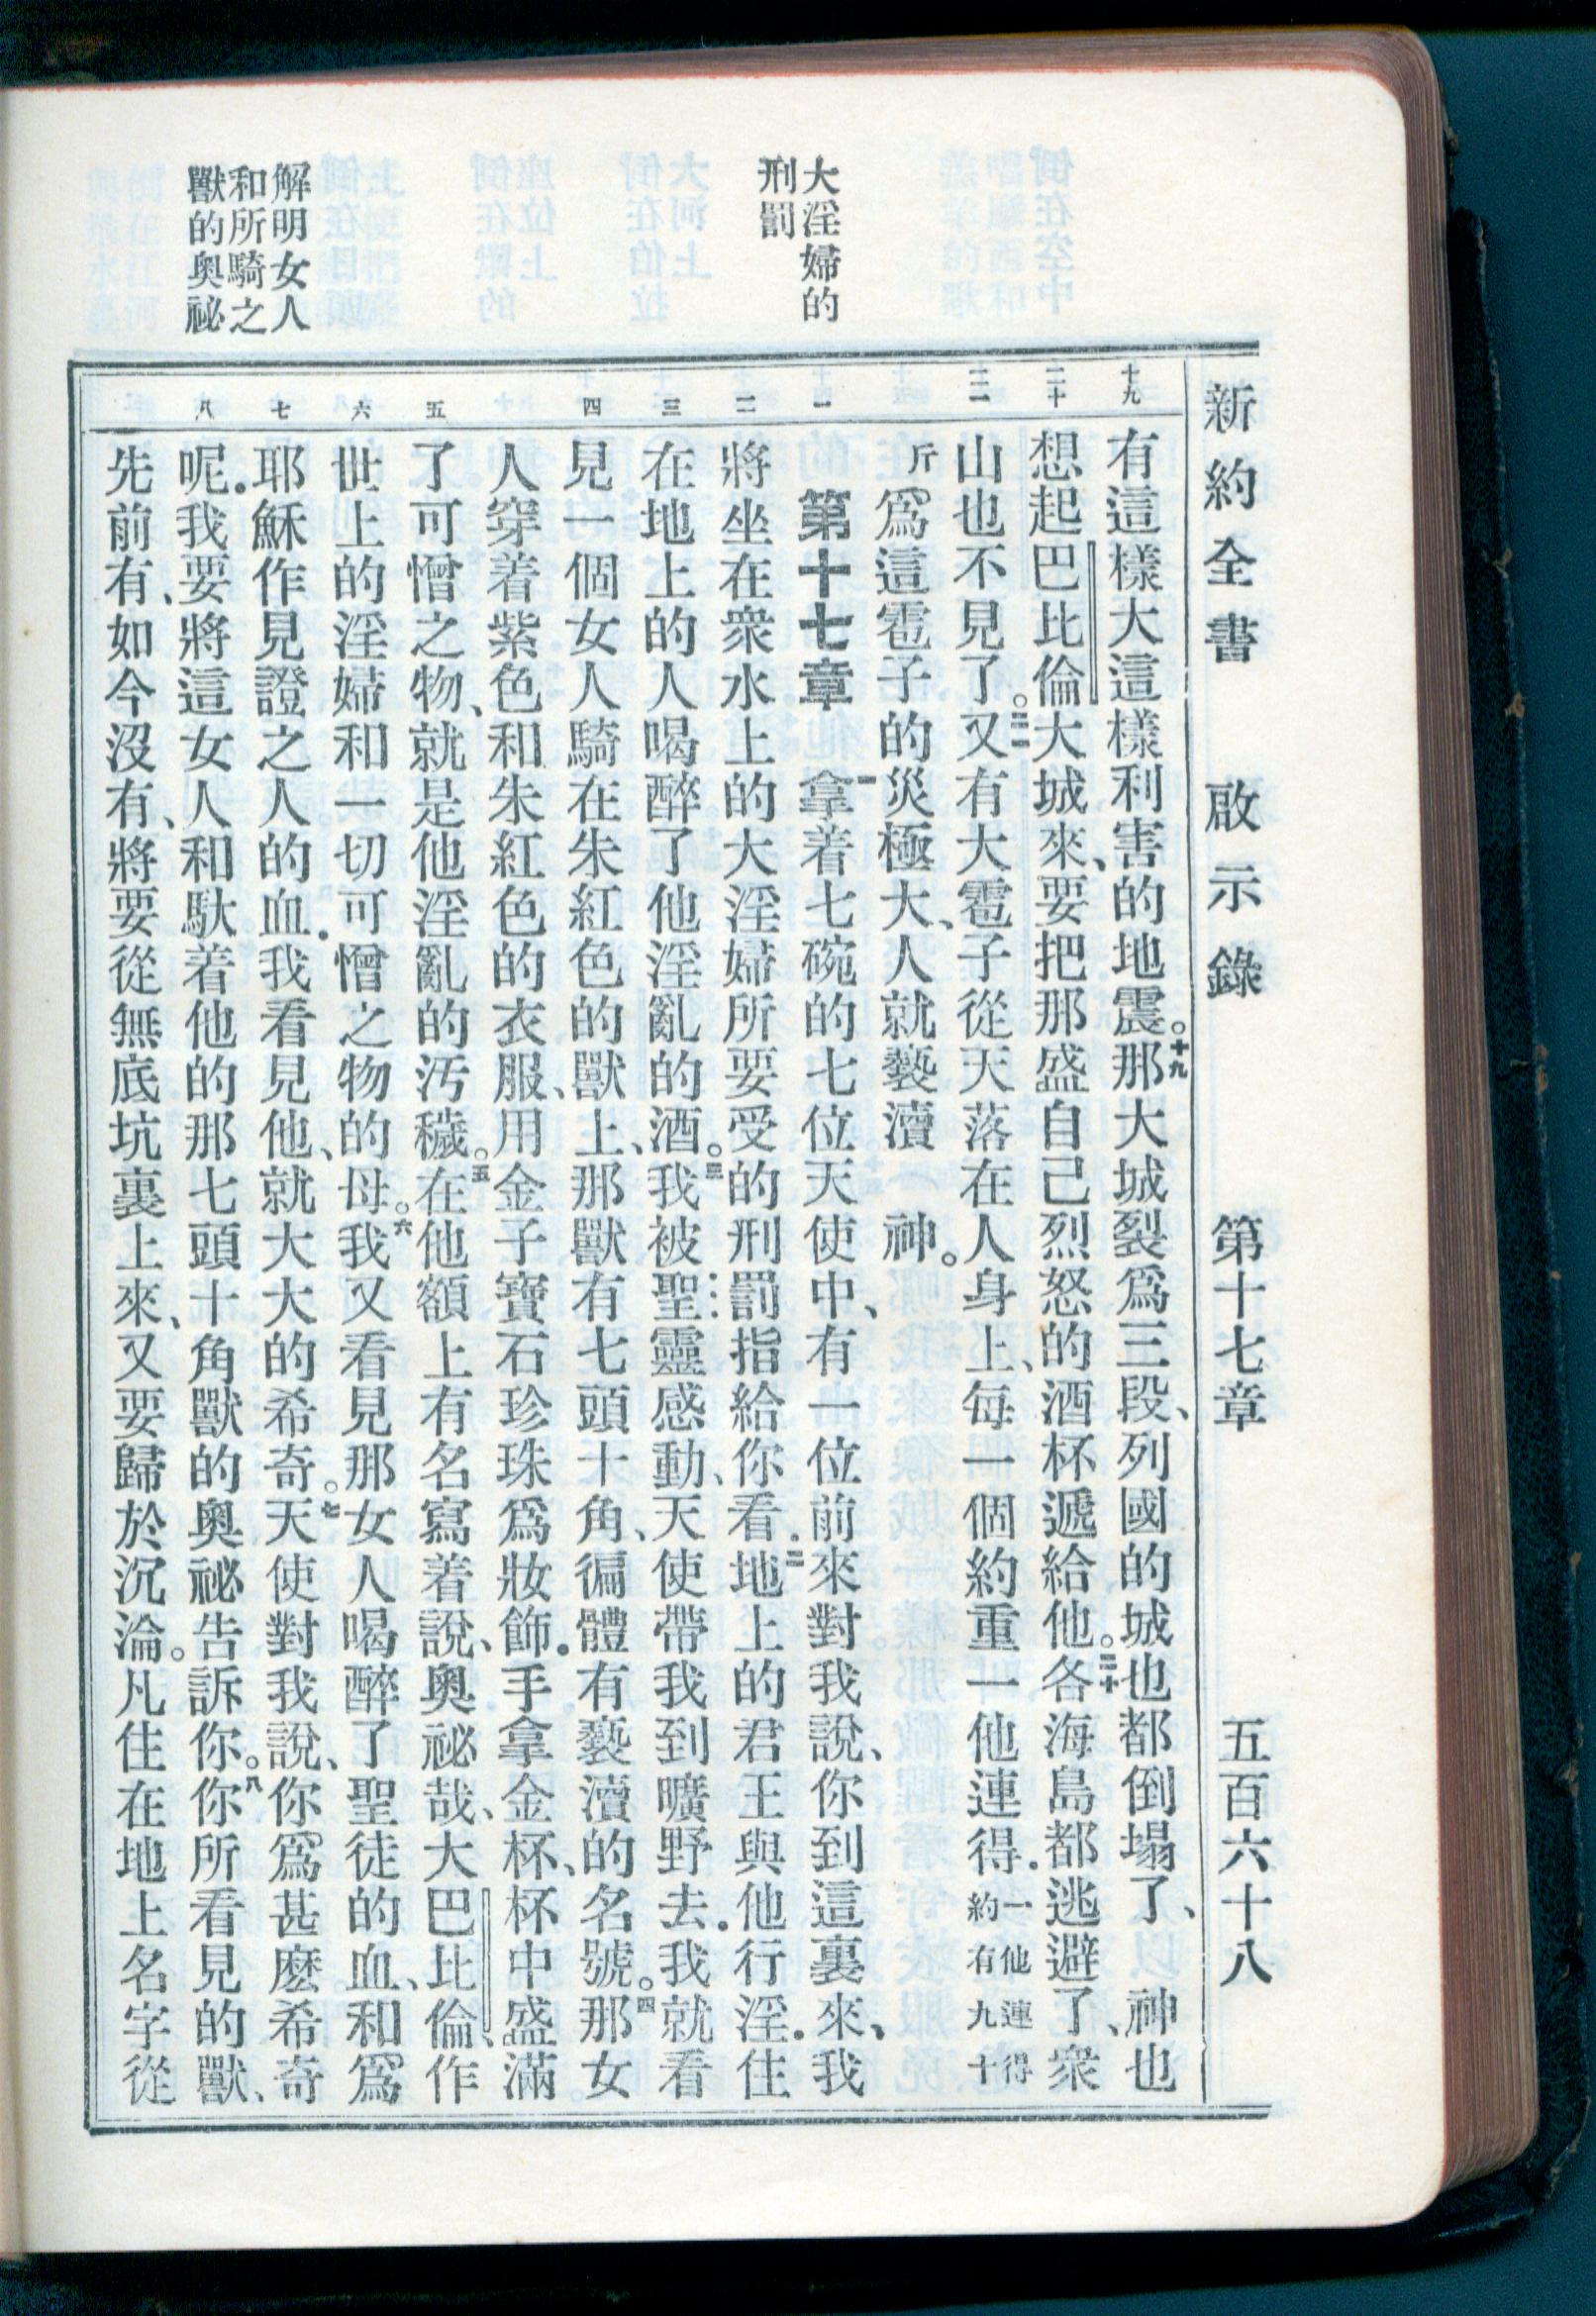 新約全書　啟示錄　第十七章　五百六十八
大淫婦的
刑罰
解明女人
和所騎之
獸的奧祕
十九
二十
二一
一
二
三
四
五
六
七
八
有這樣大這樣利害的地震。十九那大城裂爲三段、列國的城也都倒塌了、　神也
想起巴比倫大城來、要把那盛自己烈怒的酒杯遞給他。二十各海島都逃避了、衆
山也不見了。二一又有大雹子從天落在人身上、每一個約重一他連得．一他連得約有九十
斤爲這雹子的災極大、人就褻瀆　神。
第十七章　一拿着七碗的七位天使中、有一位前來對我說、你到這裏來、我
將坐在衆水上的大淫婦所要受的刑罰指給你看．二地上的君王與他行淫．住
在地上的人喝醉了他淫亂的酒。三我被聖靈感動、天使帶我到曠野去．我就看
見一個女人騎在朱紅色的獸上、那獸有七頭十角、徧體有褻瀆的名號。四那女
人穿着紫色和朱紅色的衣服、用金子寶石珍珠爲妝飾．手拿金杯、杯中盛滿
了可憎之物、就是他淫亂的汚穢。五在他額上有名寫着說、奧祕哉、大巴比倫、作
世上的淫婦和一切可憎之物的母。六我又看見那女人喝醉了聖徒的血、和爲
耶穌作見證之人的血．我看見他、就大大的希奇。七天使對我說、你爲甚麽希奇
呢．我要將這女人和馱着他的那七頭十角獸的奧祕告訴你。八你所看見的獸、
先前有、如今沒有、將要從無底坑裏上來、又要歸於沉淪。凡住在地上名字從